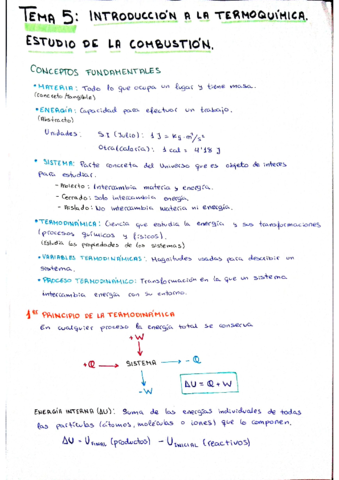 TEMA 5: INTRODUCCIÓN A LA TERMOQUÍMICA.
ESTUDIO DE LA COMBUSTIÓN.
CONCEPTOS FUNDAMENTALES
• MATERIA: Todo lo que ocupa un lugar y tiene masa.
(concreto/tangible)
• ENERGÍA: Capacidad para efectuar un trabajo.
(Abstracto)
Unidades: SI (Julio): 1 J = kg·m²/s²
Otra (caloría): 1 cal = 4'18 J
• SISTEMA: Parte concreta del Universo que es objeto de interés
para estudiar.
- Abierto: Intercambia materia y energía.
- Cerrado: Solo intercambia energía.
- Aislado: No intercambia materia ni energía.
• TERMODINÁMICA: Ciencia que estudia la energía y sus transformaciones
(procesos químicos y físicos).
(Estudia las propiedades de los sistemas)
• VARIABLES TERMODINÁMICAS: Magnitudes usadas para describir un
sistema.
• PROCESO TERMODINÁMICO: Transformación en la que un sistema
intercambia energía con su entorno.
1er PRINCIPIO DE LA TERMODINÁMICA
En cualquier proceso la energía total se conserva
+W
+Q → SISTEMA → -Q
-W
ΔU = Q + W
ENERGÍA INTERNA (ΔU): Suma de las energías individuales de todas
las partículas (átomos, moléculas o iones) que lo componen.
ΔU - U FINAL (productos) - U INICIAL (reactivos)